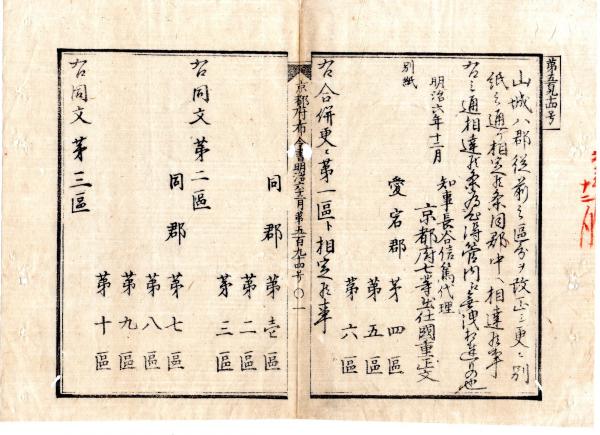 第五百九十四号
山城八郡従前之区分ヲ改正シ更ニ別
紙之通リ相定候条同郡中ヘ相達候事
右之通相達候条為心得管内ニ無洩相達るもの也
明治六年十二月
知事長谷信篤代理
京都府七等出仕國重正文
別紙
愛宕郡 第四區
第五區
第六區
右合併更ニ第一區ト相定候事
京都府布令書明治六年十二月第五百九十四号 〇一
同郡 第壱區
第二區
第三區
右同文第二區
同郡 第七區
第八區
第九區
第十區
右同文第三區
十二月